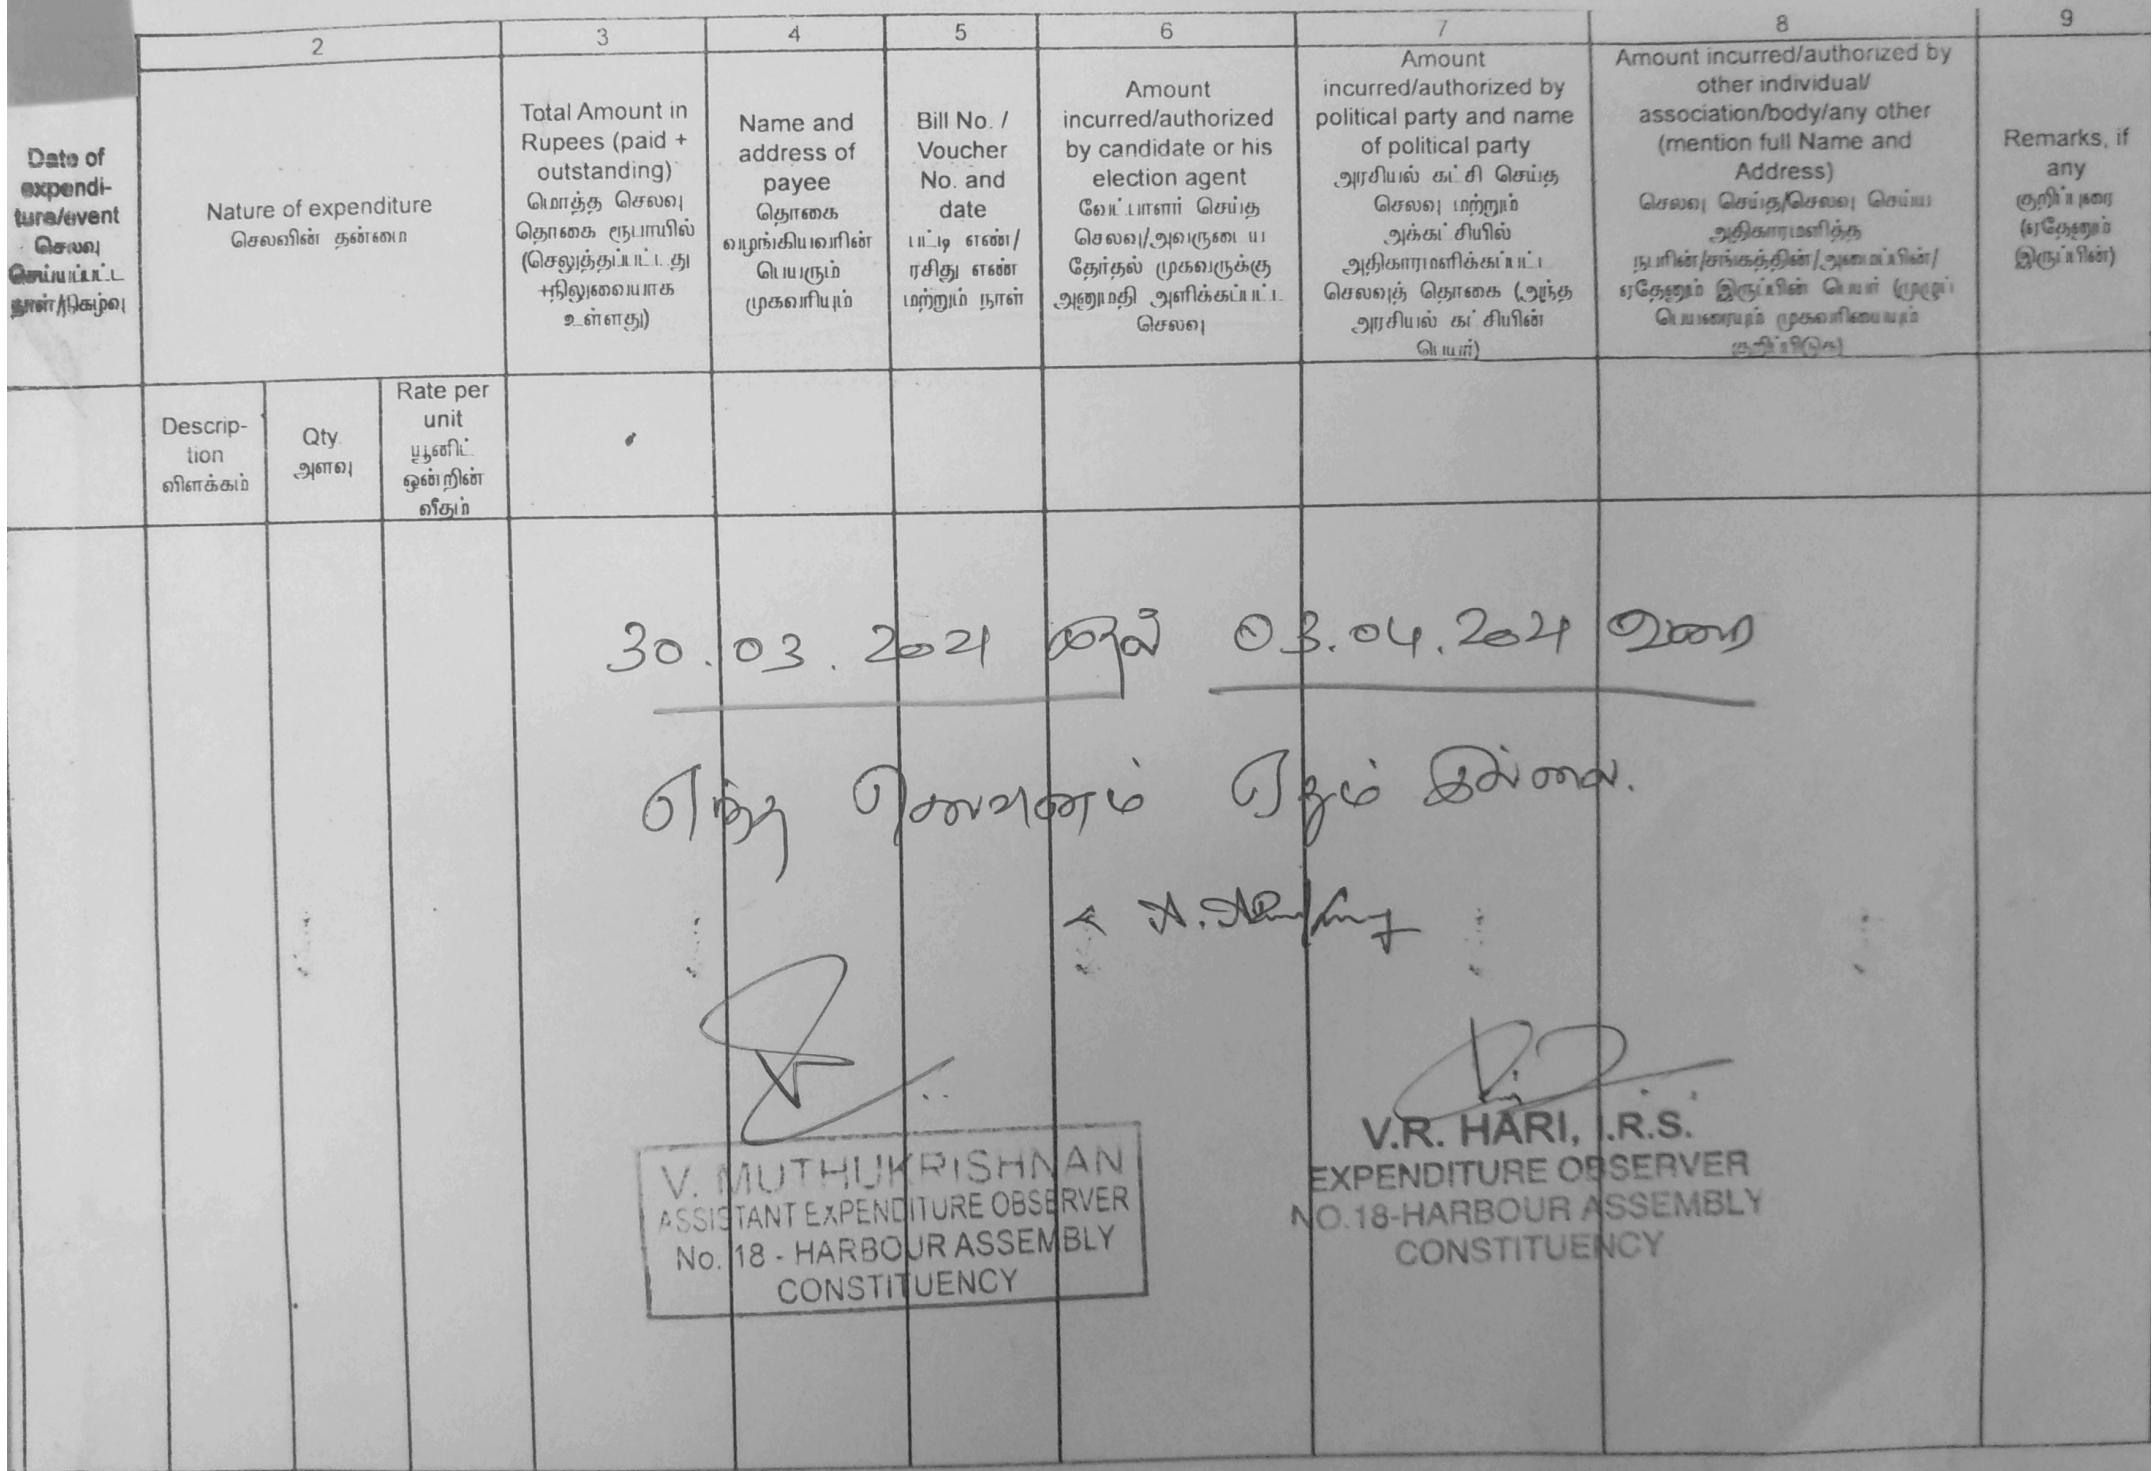 2
3
4
5
6
7
8
9
Date of
expendi-
ture/event
செலவு
செய்யப்பட்ட
நாள்/நிகழ்வு
Nature of expenditure
செலவின் தன்மை
Total Amount in
Rupees (paid +
outstanding)
மொத்த செலவு
தொகை ரூபாயில்
(செலுத்தப்பட்டது
+நிலுவையாக
உள்ளது)
Name and
address of
payee
தொகை
வழங்கியவரின்
பெயரும்
முகவரியும்
Bill No. /
Voucher
No. and
date
பட்டி எண்/
ரசிது எண்
மற்றும் நாள்
Amount
incurred/authorized
by candidate or his
election agent
வேட்பாளர் செய்த
செலவு/அவருடைய
தேர்தல் முகவருக்கு
அனுமதி அளிக்கப்பட்ட
செலவு
Amount
incurred/authorized by
political party and name
of political party
அரசியல் கட்சி செய்த
செலவு மற்றும்
அக்கட்சியில்
அதிகாரமளிக்கப்பட்ட
செலவுத் தொகை (அந்த
அரசியல் கட்சியின்
பெயர்)
Amount incurred/authorized by
other individual/
association/body/any other
(mention full Name and
Address)
செலவு செய்த/செலவு செய்ய
அதிகாரமளித்த
நபரின்/சங்கத்தின்/அமைப்பின்/
ஏதேனும் இருப்பின் பெயர் (முழுப்
பெயரையும் முகவரியையும்
குறிப்பிடுக)
Remarks, if
any
குறிப்புரை
(ஏதேனும்
இருப்பின்)
Descrip-
tion
விளக்கம்
Qty
அளவு
Rate per
unit
யூனிட்
ஒன்றின்
வீதம்
30.03.2021 முதல் 03.04.2021 வரை
எந்த செலவினம் ஏதும் இல்லை.
V. MUTHUKRISHNAN
ASSISTANT EXPENDITURE OBSERVER
No. 18 - HARBOUR ASSEMBLY
CONSTITUENCY
V.R. HARI, I.R.S.
EXPENDITURE OBSERVER
NO.18-HARBOUR ASSEMBLY
CONSTITUENCY